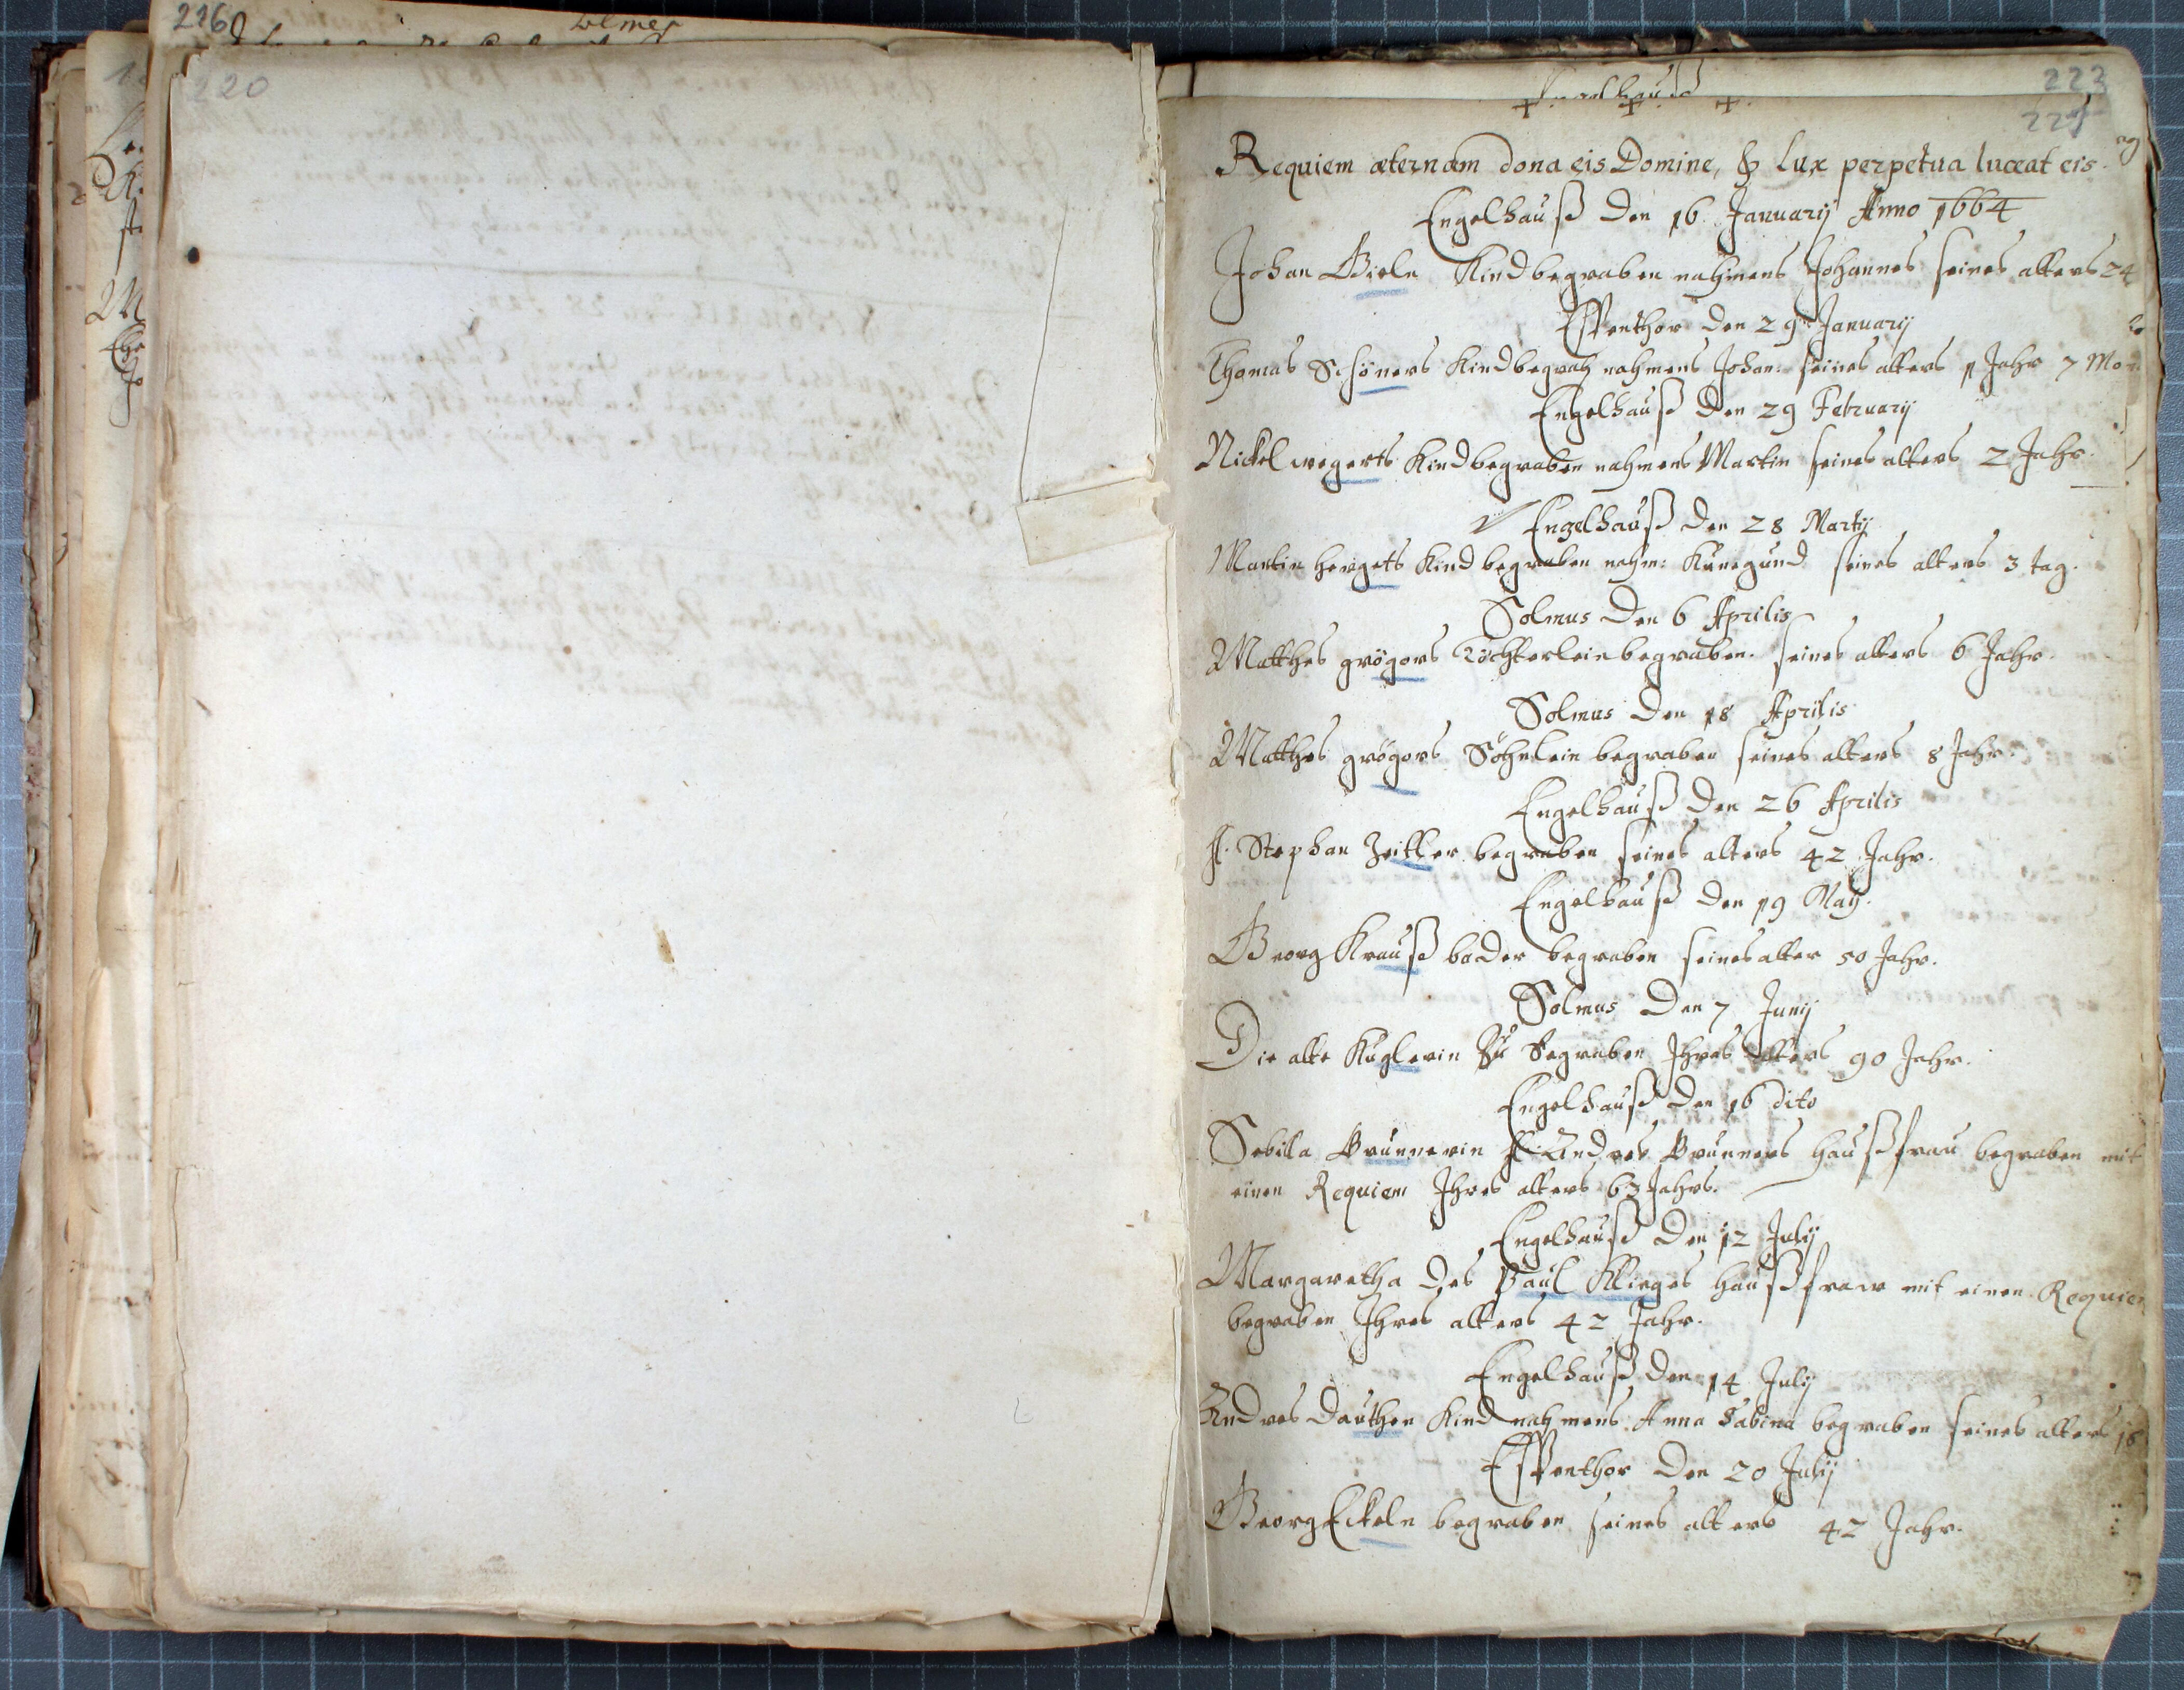 216
220
223
221
Requiem æternam dona eis Domine, & lux perpetua luceat eis.
Engelhauß den 16 Januarij Anno 1664
Johan Bieln Kind begraben nahmens Johannes seines alters 24
Essenthor den 29 Januarij
Thomas Schöners Kind begrab nahmens Johan: seines alters 1 Jahr 7 Mo
Engelhauß den 29 Februarij
Nickel wegerts Kind begraben nahmens Martin seines alters 2 Jahr.
Engelhauß den 28 Martij
Martin hergets Kind begraben nahm: Kunegund seines alters 3 tag.
Solmus den 6 Aprilis
Matthes grögors Töchterlein begraben. seines alters 6 Jahr.
Solmus den 18 Aprilis
Matthes grögors Söhnlein begraben seines alters 8 Jahr.
Engelhauß den 26 Aprilis
H. Stephan Zeitler begraben seines alters 42 Jahr.
Engelhauß den 19 Maij.
Georg Krauß bader begraben seines alter 50 Jahr.
Solmus den 7 Junij
Die alte Kuglerin begraben Ihres alters 90 Jahr.
Engelhauß den 16 dito
Sebilla Brunnerin H. Andres Brunners haußfrau begraben mit
einen Requiem Ihres alters 63 Jahrs.
Engelhauß den 12 Julij
Margaretha des Paul Klinges haußfraw mit einen Requiem
begraben Ihres alters 42 Jahr.
Engelhauß den 14 Julij
Andres Dauthen Kind nahmens Anna Sabina begraben seines alters 18
Essenthor den 20 Julij
Georg Eckeln begraben seines alters 42 Jahr.